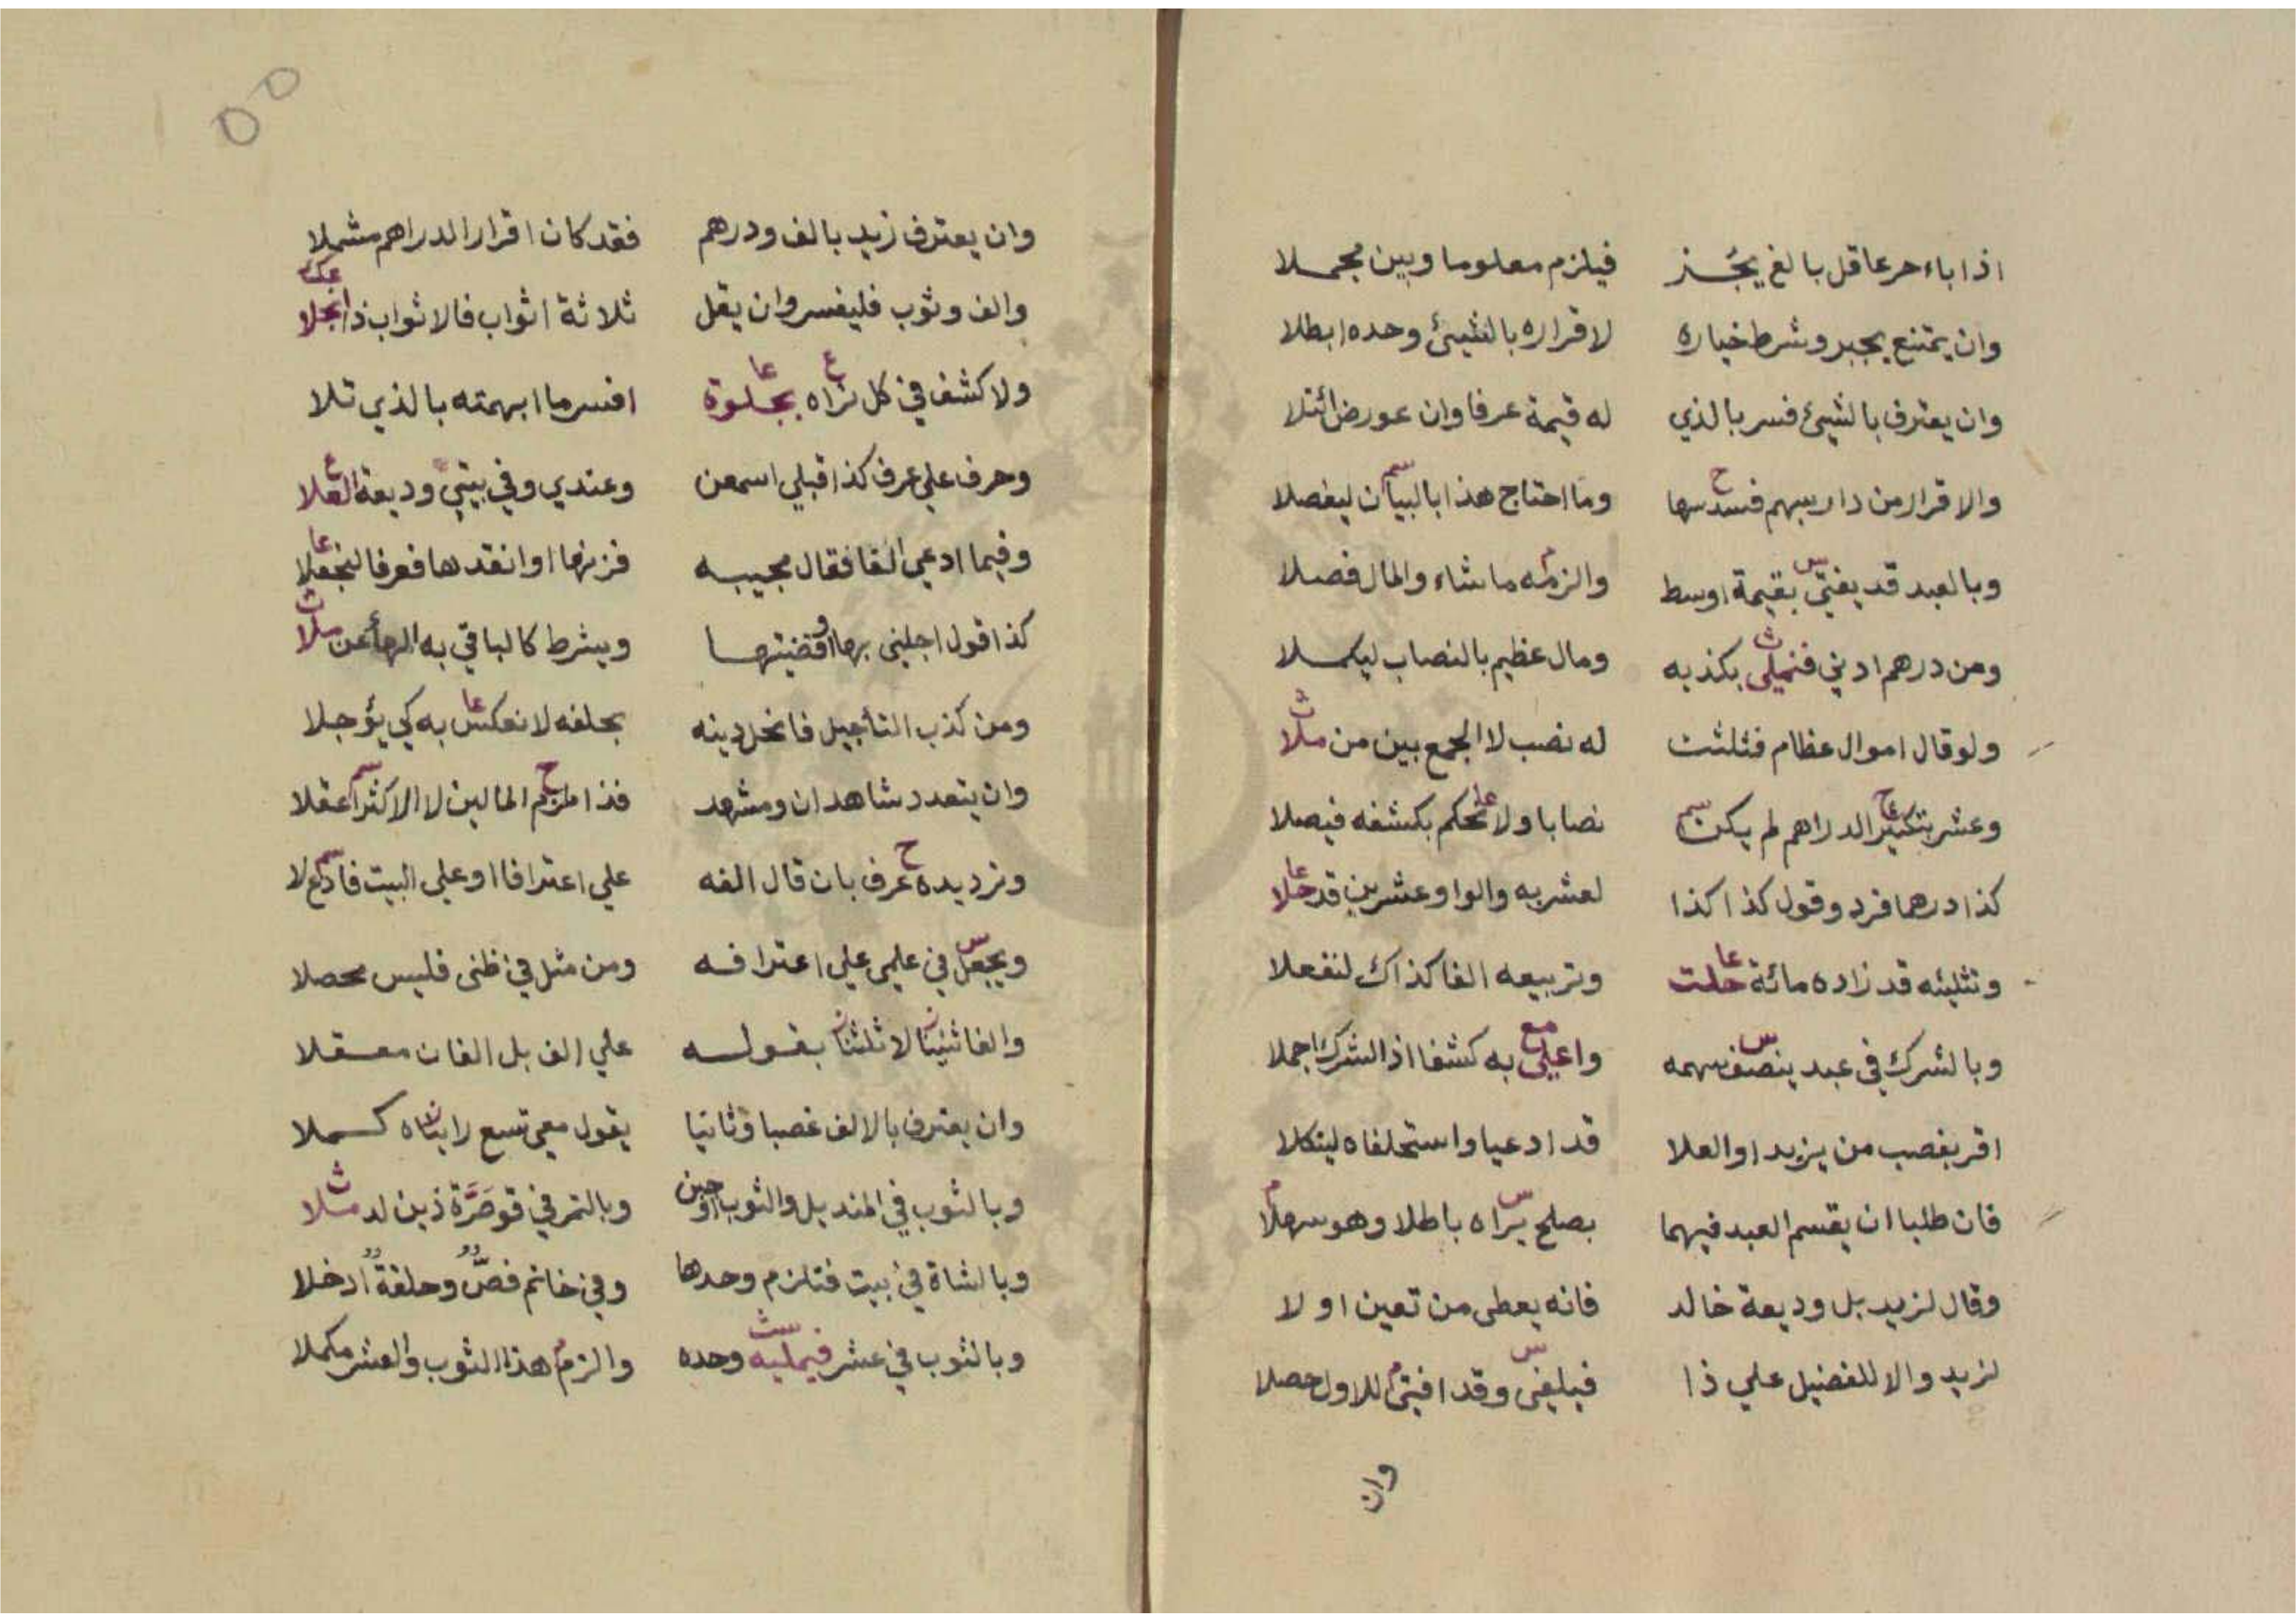 اذا باء حر عاقل بالغ يجُز فيلزم معلوما وبين مجملا
وان يمتنع يجبر وشرط خياره لاقراره بالشيئ وحده ابطلا
وان يعترف بالشيئ فسر بالذي له قيمة عرفا وان عورض ائتلا
والاقرار من دار بسهم فسدسها وما احتاج هذا بالبيان ليفصلا
وبالعبد قد يفتى بقيمة اوسط والزمه ما شاء والمال فصلا
ومن درهم ادني فنملي بكذبه ومال عظيم بالنصاب ليكملا
ولو قال اموال عظام فثلثت له نصب لا الجمع بين من ملا
وعشر بتكثير الدراهم لم يكن نصابا ولا تحكم بكشفه فيصلا
كذا درهما فرد وقول كذا كذا لعشر به والواو عشرين قد حلا
وتثليثه قد زاده مائة حلت وتربيعه الفا كذاك لنفعلا
وبالشرك في عبد ينصف سهمه واعلى به كشفا اذ الشرك اجملا
اقر بغصب من يزيد او العلا قد ادعيا واستحلفاه لينكلا
فان طلبا ان يقسم العبد فيهما بصلح يراه باطلا وهو سهلا
وقال لزيد بل وديعة خالد فانه يعطى من تعين او لا
لزيد والا للفضيل علي ذا فيلغى وقد افتى للاول حصلا
وان
وان يعترف زيد بالف ودرهم فقد كان اقرار الدراهم مشملا
والف وثوب فليفسر وان يقل ثلاثة اثواب فالاثواب ذا انجلا
ولا كشف في كل تراه بجلوة افسر ما ابهمته بالذي تلا
وحرف علي عرف كذا قبلي اسمعن وعندي وفي بيتي وديعة العلا
وفيما ادعي الفا فقال مجيبه فزنها او انقدها فعرفا لنجعلا
كذا قول اجلني بها وقضيتها ويشرط كالباقي به الهأ عن ملا
ومن كذب التأجيل فانحل دينه بحلفه لا نعكس به كي يؤجلا
وان يتعدد شاهدان ومشهد فذا ملزم المالين لا الاكثر اعقلا
وترديده عرف بان قال الفه علي اعترافا او علي البيت فادع لا
ويجعل في علمي علي اعترافه ومن مثل في ظنى فليس محصلا
والفا ثنينا لا ثلثنا بقوله علي الف بل الفان معقلا
وان يعترف بالالف غصبا وثانيا يقول معي تسع رايناه كملا
وبالثوب في المنديل والثوب اوجبن وبالتمر في قوصَرَّة ذين له مثلا
وبالشاة في بيت فتلزم وحدها وفي خاتم فصٌّ وحلقةٌ ادخلا
وبالثوب في عشر فيمليه وحده والزم هذا الثوب والعشر مكملا